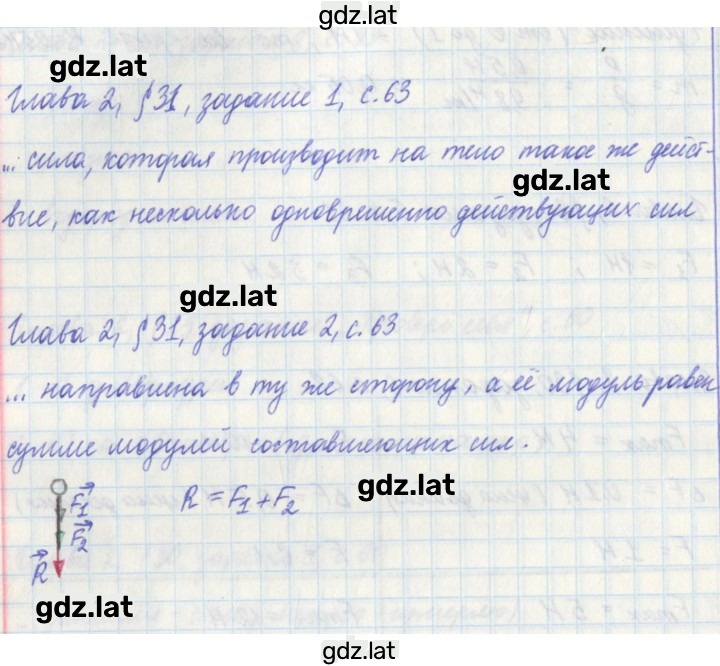 gdz.lat
gdz.lat
Глава 2, §31, задание 1, с. 63
... сила, которая производит на тело такое же дейст-
gdz.lat
вие, как несколько одновременно действующих сил
gdz.lat
Глава 2, §31, задание 2, с. 63
... направлена в ту же сторону, а её модуль равен
сумме модулей составляющих сил.
gdz.lat
F₁ R = F₁ + F₂
F₂
R
gdz.lat
gdz.lat